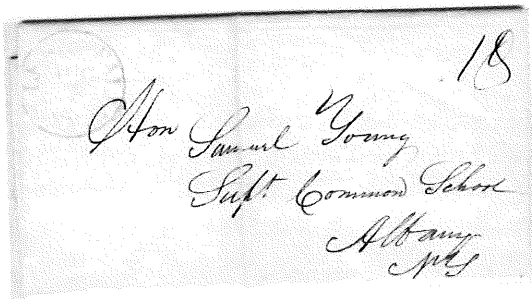 18
Hon Samuel Young
Supt Common School
Albany